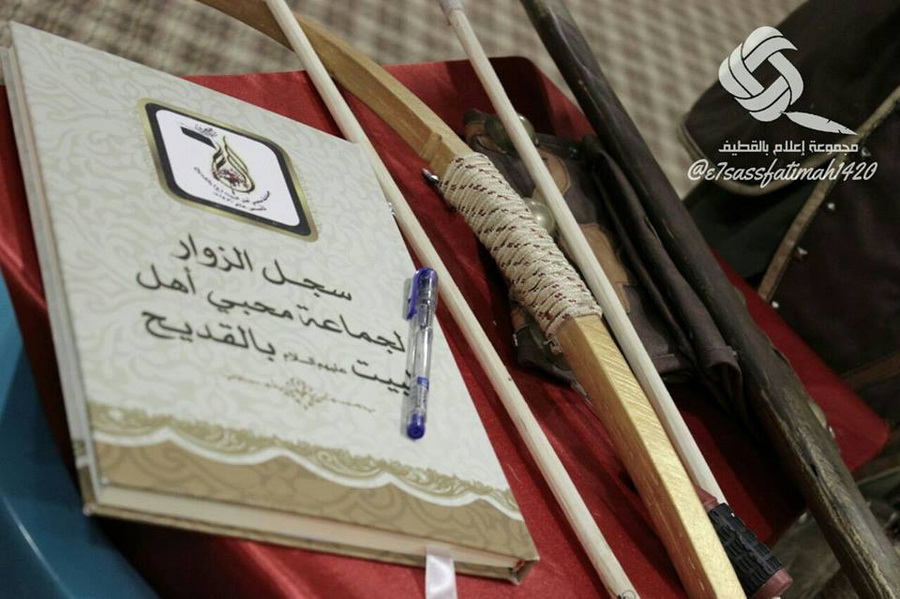 سجل الزوار
لجماعة محبي أهل
البيت عليهم السلام بالقديح
مجموعة إعلام بالقطيف
@e7sassfatimah1420